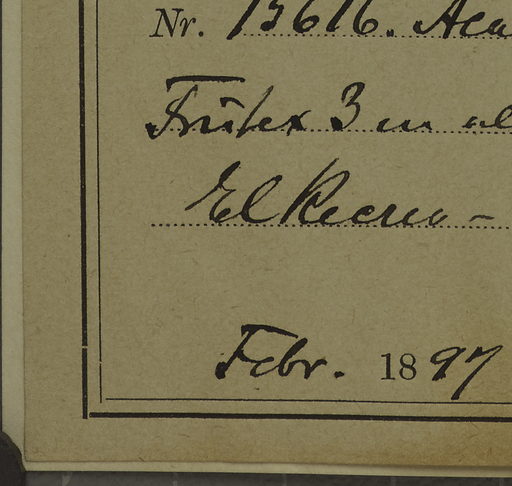 Nr. 13616. Aca
Frutex 3 m al
El Recreo -
Febr. 1897